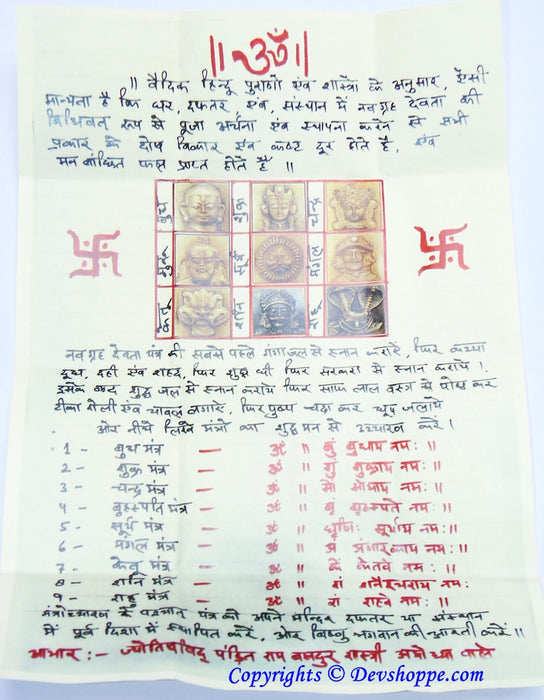 ॥ ॐ ॥
॥ वैदिक हिन्दू पुराणों एंव शास्त्रों के अनुसार, ऐसी
मान्यता है कि घर, दफतर, एंव, संस्थान में नवग्रह देवता की
विधिवत रूप से पूजा अर्चना एंव स्थापना करने से सभी
प्रकार के दोष विकार एंव कष्ट दूर होते है, एंव
मन वांछित फल प्राप्त होते है ॥
बुध शुक्र चन्द्र
गुरु सूर्य मंगल
केतु शनि राहु
नवग्रह देवता यंत्र को सबसे पहले गंगाजल से स्नान करायें, फिर कच्चा
दूध, दही एंव शहद, फिर शुद्ध घी फिर सरकरा से स्नान कराये ।
इसके बाद शुद्ध जल से स्नान कराये फिर साफ लाल वस्त्र से पोछ कर
टीका रोली एंव चावल लगायें, फिर पुष्प चढ़ा कर धूप जलाये
और नीचे लिखे मंत्रो का शुद्ध मन से उच्चारण करें ।
1 - बुध मंत्र — ॐ ॥ बुं बुधाय नमः ॥
2 - शुक्र मंत्र — ॐ ॥ शुं शुक्राय नमः ॥
3 - चन्द्र मंत्र — ॐ ॥ सों सोमाय नमः ॥
4 - बृहस्पति मंत्र — ॐ ॥ बृं बृहस्पते नमः ॥
5 - सूर्य मंत्र — ॐ ॥ घृणिः सूर्याय नमः ॥
6 - मंगल मंत्र — ॐ ॥ अं अंगारकाय नमः ॥
7 - केतु मंत्र — ॐ ॥ कें केतवे नमः ॥
8 - शनि मंत्र — ॐ ॥ शं शनैश्चराय नमः
9 - राहु मंत्र — ॐ ॥ रां राहवे नमः ॥
मंत्रोच्चारण के पश्चात यंत्र को अपने मन्दिर दफतर या संस्थान
में पूर्व दिशा में स्थापित करें, और विष्णु भगवान की आरती करें ॥
आभार :- ज्योतिषविद् पंडित राम बहादुर शास्त्री अयोध्या वाले
Copyrights © Devshoppe.com